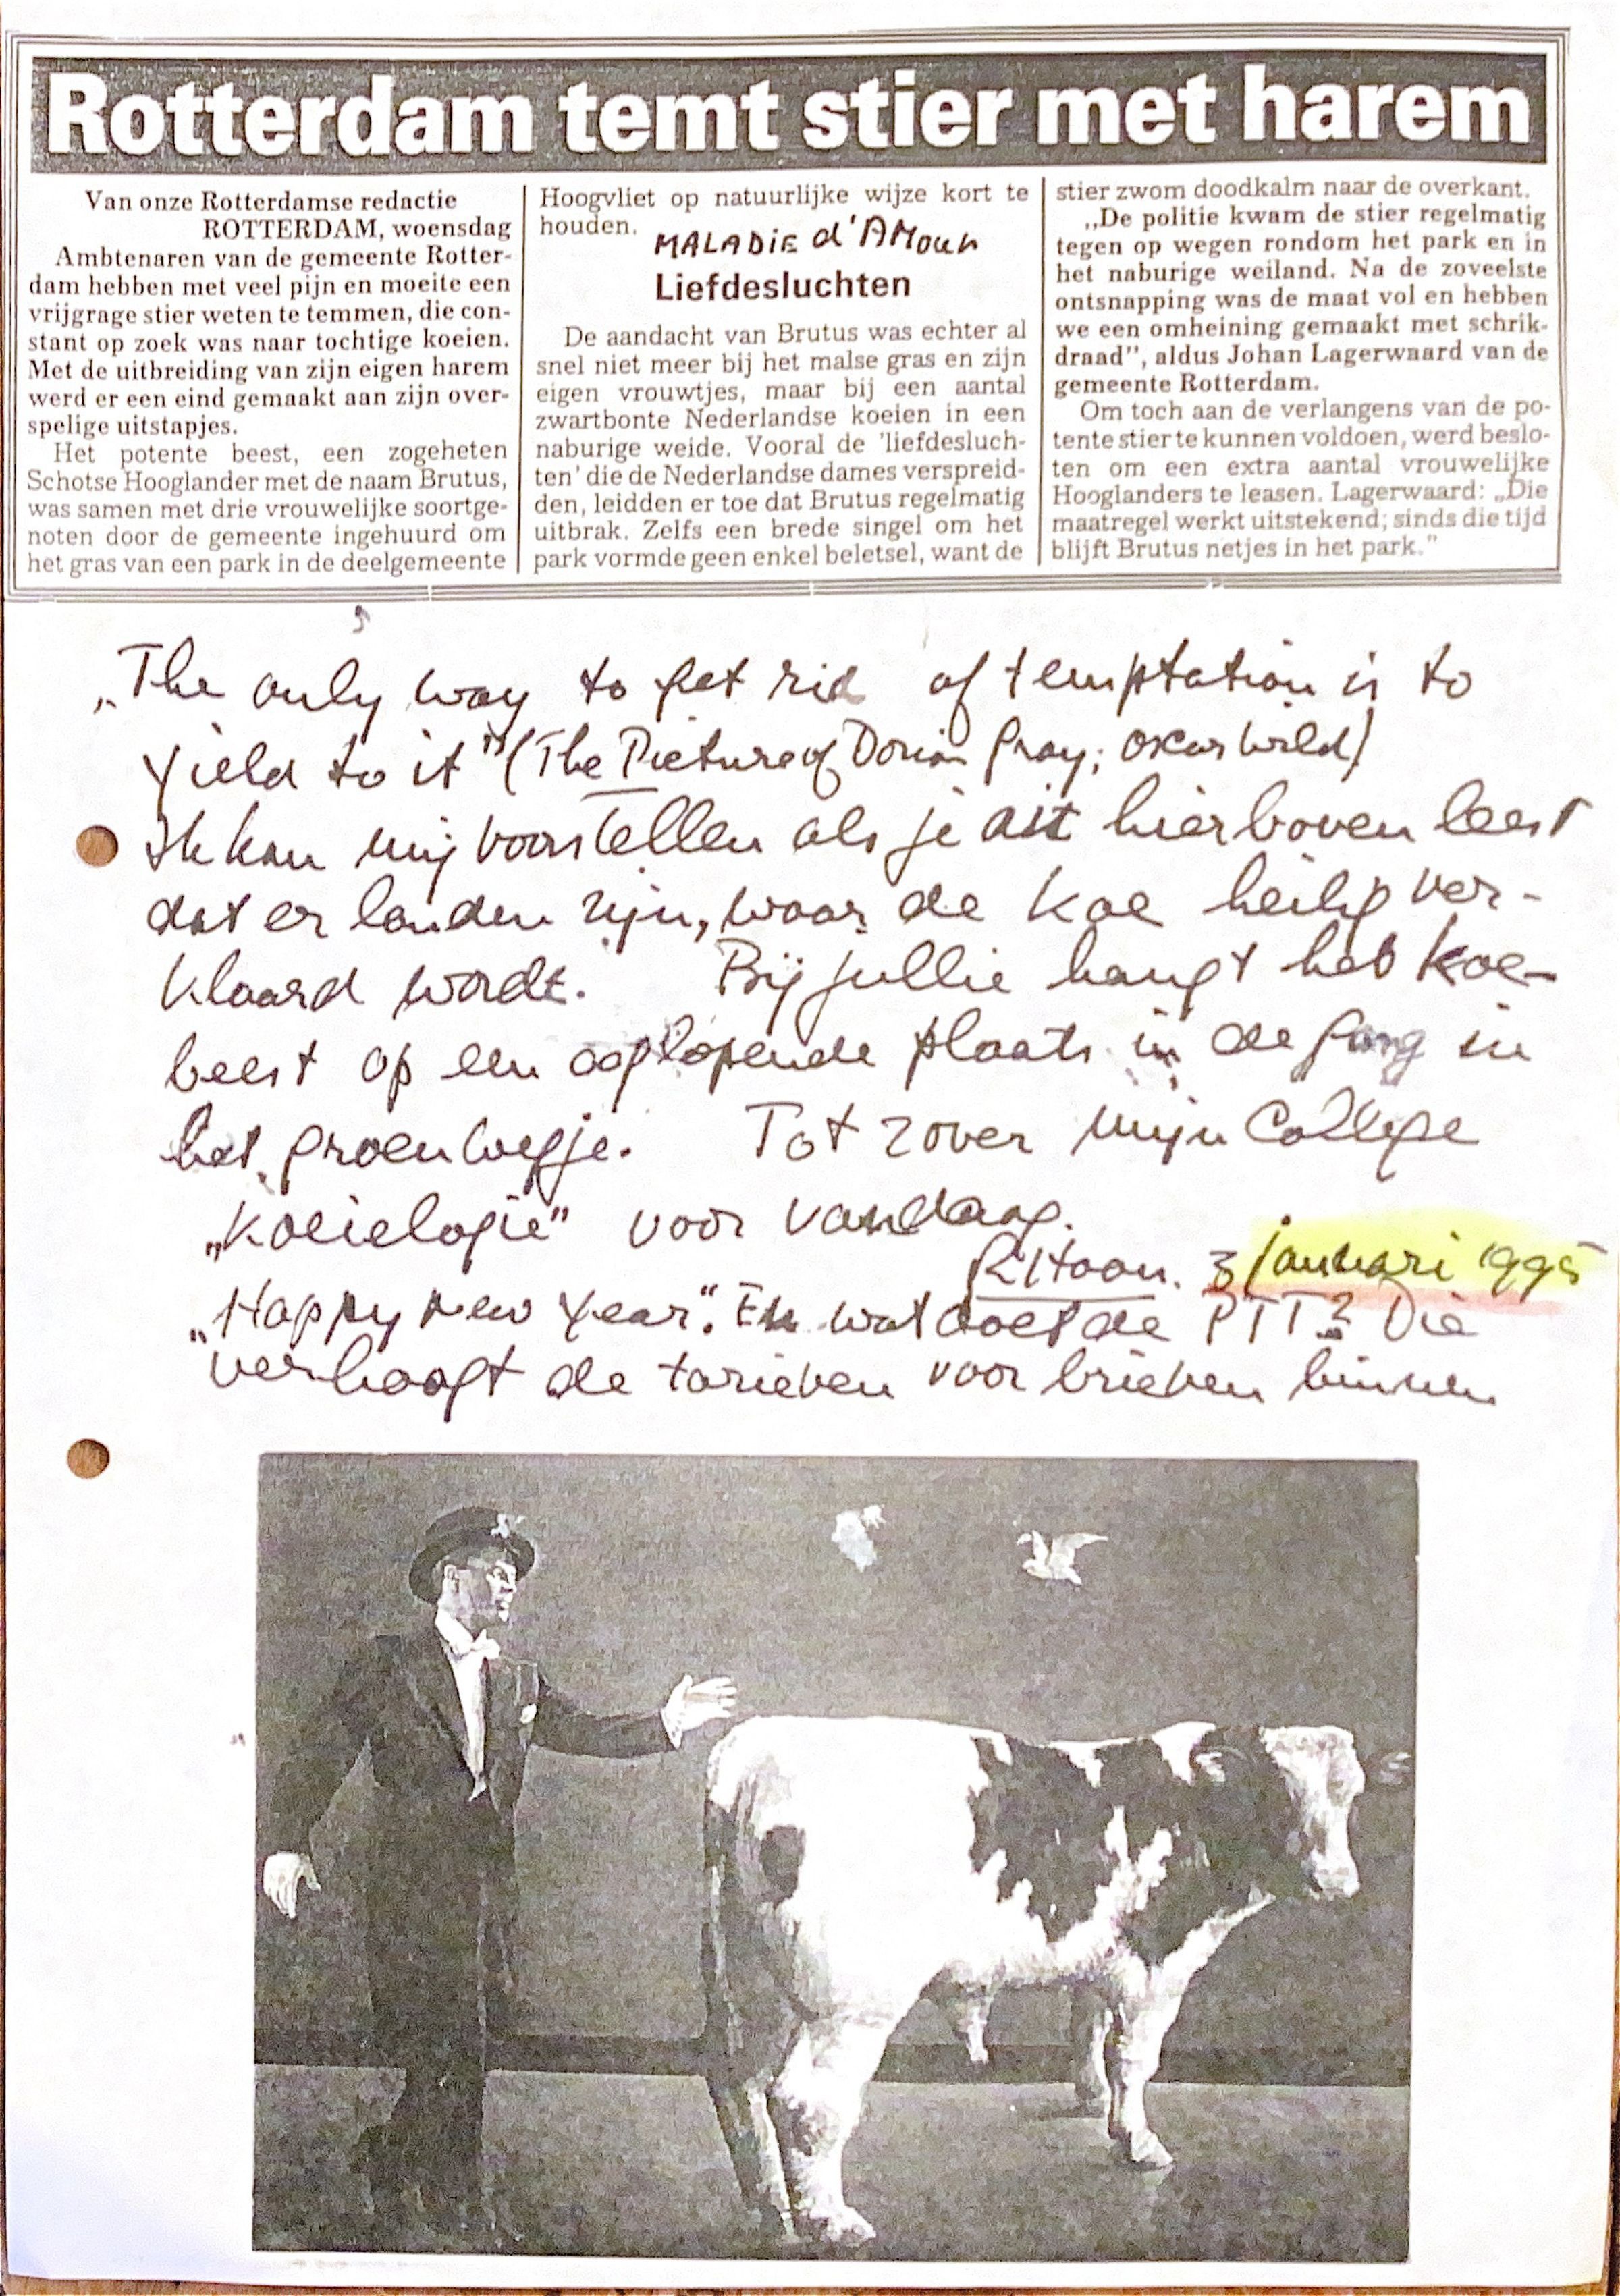 Rotterdam temt stier met harem
Van onze Rotterdamse redactie
ROTTERDAM, woensdag
Ambtenaren van de gemeente Rotter-
dam hebben met veel pijn en moeite een
vrijgrage stier weten te temmen, die con-
stant op zoek was naar tochtige koeien.
Met de uitbreiding van zijn eigen harem
werd er een eind gemaakt aan zijn over-
spelige uitstapjes.
Het potente beest, een zogeheten
Schotse Hooglander met de naam Brutus,
was samen met drie vrouwelijke soortge-
noten door de gemeente ingehuurd om
het gras van een park in de deelgemeente
Hoogvliet op natuurlijke wijze kort te
houden.
MALADiE d'AMour
Liefdesluchten
De aandacht van Brutus was echter al
snel niet meer bij het malse gras en zijn
eigen vrouwtjes, maar bij een aantal
zwartbonte Nederlandse koeien in een
naburige weide. Vooral de 'liefdesluch-
ten' die de Nederlandse dames verspreid-
den, leidden er toe dat Brutus regelmatig
uitbrak. Zelfs een brede singel om het
park vormde geen enkel beletsel, want de
stier zwom doodkalm naar de overkant.
„De politie kwam de stier regelmatig
tegen op wegen rondom het park en in
het naburige weiland. Na de zoveelste
ontsnapping was de maat vol en hebben
we een omheining gemaakt met schrik-
draad", aldus Johan Lagerwaard van de
gemeente Rotterdam.
Om toch aan de verlangens van de po-
tente stier te kunnen voldoen, werd beslo-
ten om een extra aantal vrouwelijke
Hooglanders te leasen. Lagerwaard: „Die
maatregel werkt uitstekend; sinds die tijd
blijft Brutus netjes in het park."
„The only way to get rid of temptation is to
yield to it" (The Picture of Dorian Gray; Oscar Wild)
Ik kan mij voorstellen als je dit hierboven leest
dat er landen zijn, waar de koe heilig ver-
klaard wordt. Bij jullie hangt het koe-
beest op een oplopende plaats in de gang in
het groenwegje. Tot zover mijn College
„Koeielogie" voor vandaag.
3 januari 1995
„Happy New Year". En wat doet de PTT? Die
verhoogt de tarieven voor brieven binnen